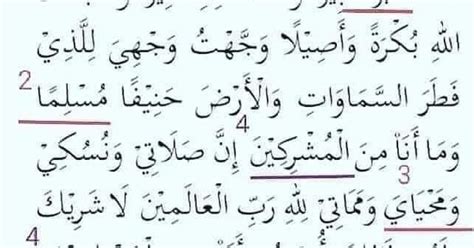 اللهِ بُكْرَةً وَأَصِيْلًا وَجَّهْتُ وَجْهِيَ لِلَّذِيْ
2 فَطَرَ السَّمَاوَاتِ وَالْأَرْضَ حَنِيْفًا مُسْلِمًا
4
وَمَا أَنَا۠ مِنَ الْمُشْرِكِيْنَ إِنَّ صَلَاتِيْ وَنُسُكِيْ
3
وَمَحْيَايَ وَمَمَاتِيْ لِلهِ رَبِّ الْعَالَمِيْنَ لَا شَرِيْكَ
4